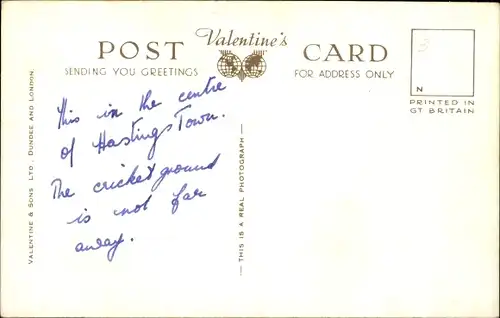 Valentine's
POST CARD
SENDING YOU GREETINGS
FOR ADDRESS ONLY
3
N
PRINTED IN
GT BRITAIN
This in the centre
of Hastings Town.
The cricket ground
is not far
away.
VALENTINE & SONS LTD., DUNDEE AND LONDON.
— THIS IS A REAL PHOTOGRAPH —